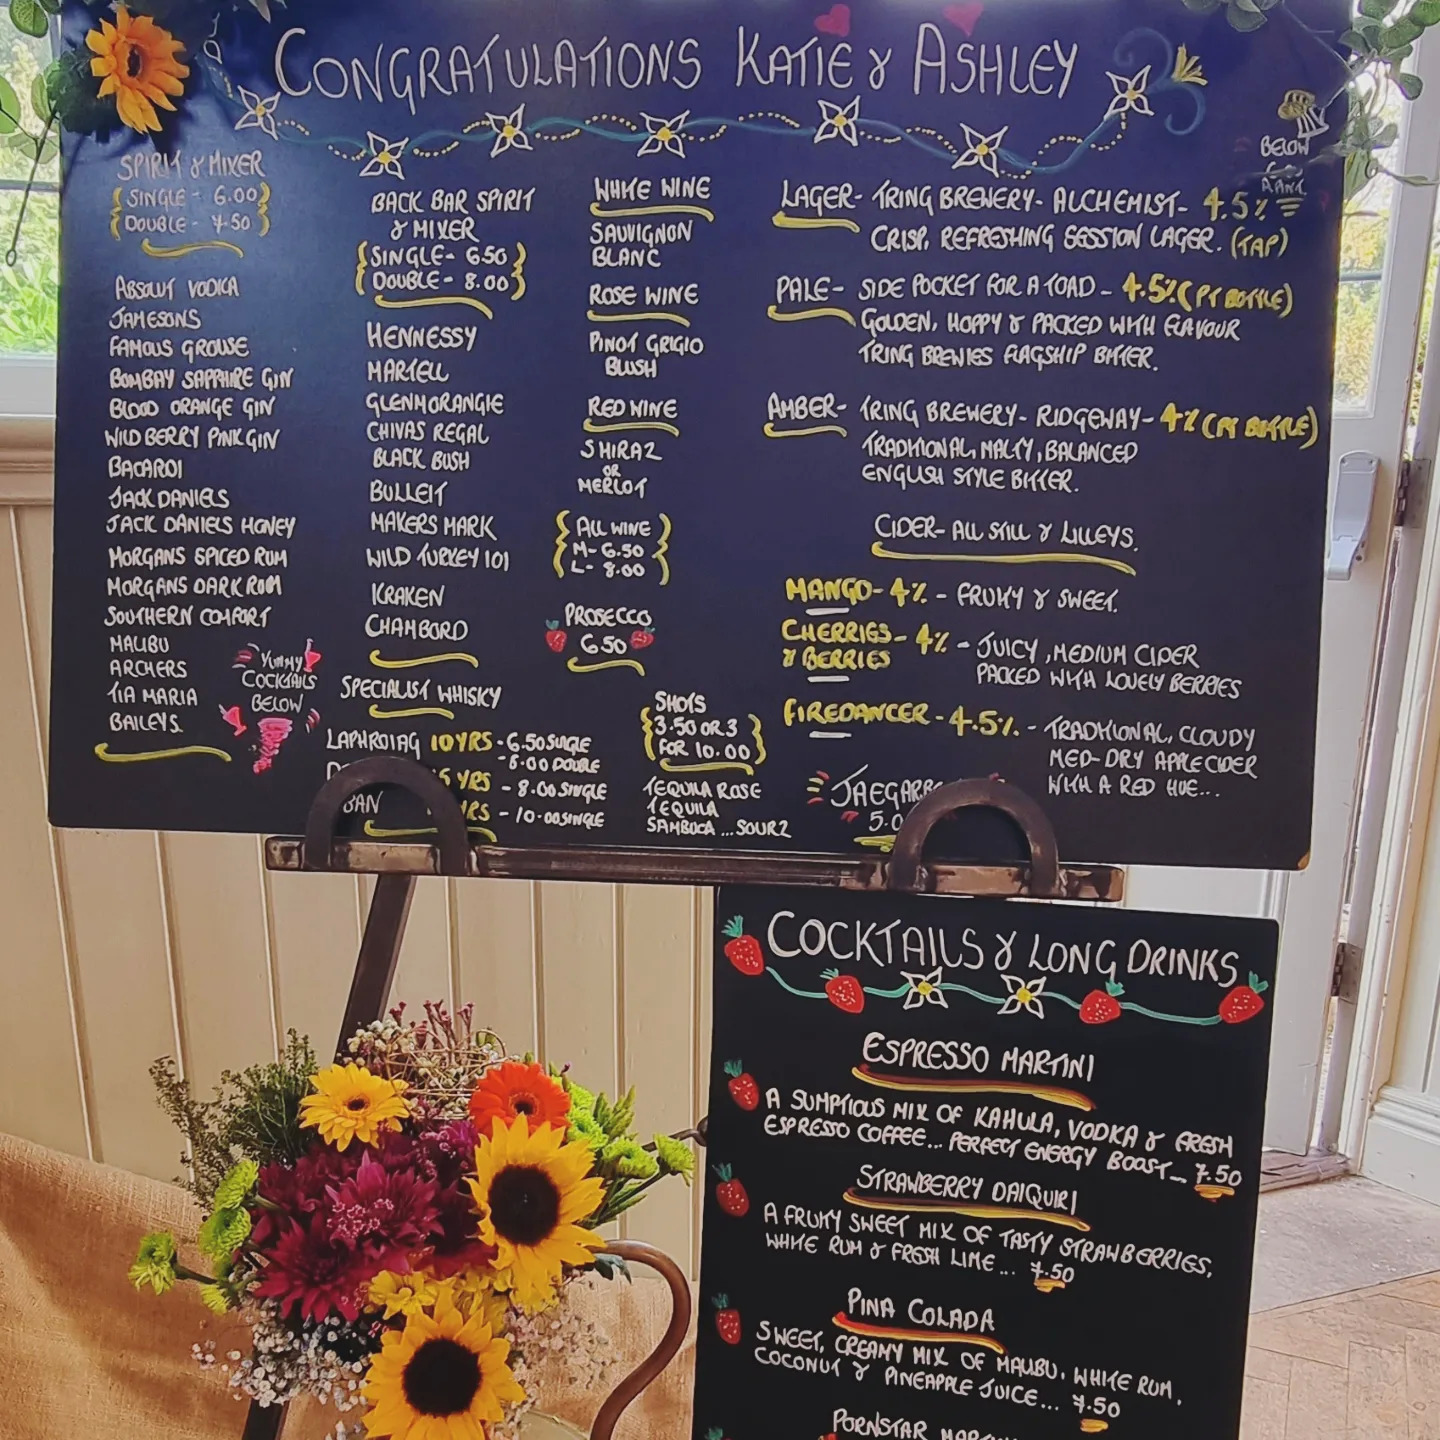 CONGRATULATIONS KATIE & ASHLEY
SPIRIT & MIXER
SINGLE - 6.00
DOUBLE - 7.50
ABSOLUT VODKA
JAMESONS
FAMOUS GROUSE
BOMBAY SAPPHIRE GIN
BLOOD ORANGE GIN
WILD BERRY PINK GIN
BACARDI
JACK DANIELS
JACK DANIELS HONEY
MORGANS SPICED RUM
MORGANS DARK RUM
SOUTHERN COMFORT
MALIBU
ARCHERS
TIA MARIA
BAILEYS.
YUMMY
COCKTAILS
BELOW
BACK BAR SPIRIT
& MIXER
SINGLE - 6.50
DOUBLE - 8.00
HENNESSY
MARTELL
GLENMORANGIE
CHIVAS REGAL
BLACK BUSH
BULLEIT
MAKERS MARK
WILD TURKEY 101
KRAKEN
CHAMBORD
SPECIALIST WHISKY
LAPHROIAG 10YRS - 6.50 SINGLE
- 8.00 DOUBLE
YRS - 8.00 SINGLE
- 10.00 SINGLE
WHITE WINE
SAUVIGNON
BLANC
ROSE WINE
PINOT GRIGIO
BLUSH
RED WINE
SHIRAZ
OR
MERLOT
ALL WINE
M - 6.50
L - 8.00
PROSECCO
6.50
SHOTS
3.50 OR 3
FOR 10.00
TEQUILA ROSE
TEQUILA
SAMBUCA ... SOURZ
BELOW
LAGER - TRING BREWERY - ALCHEMIST - 4.5%
CRISP, REFRESHING SESSION LAGER. (TAP)
PALE - SIDE POCKET FOR A TOAD - 4.5% (PT BOTTLE)
GOLDEN, HOPPY & PACKED WITH FLAVOUR
TRING BREWIES FLAGSHIP BITTER.
AMBER - TRING BREWERY - RIDGEWAY - 4% (PT BOTTLE)
TRADITIONAL, MALTY, BALANCED
ENGLISH STYLE BITTER.
CIDER - ALL STILL & LILLEYS.
MANGO - 4% - FRUITY & SWEET.
CHERRIES - 4% - JUICY, MEDIUM CIDER
& BERRIES PACKED WITH LOVELY BERRIES
FIREDANCER - 4.5% - TRADITIONAL, CLOUDY
MED-DRY APPLE CIDER
WITH A RED HUE...
COCKTAILS & LONG DRINKS
ESPRESSO MARTINI
A SUMPTIOUS MIX OF KAHULA, VODKA & FRESH
ESPRESSO COFFEE... PERFECT ENERGY BOOST... 7.50
STRAWBERRY DAIQUIRI
A FRUITY SWEET MIX OF TASTY STRAWBERRIES,
WHITE RUM & FRESH LIME ... 7.50
PINA COLADA
SWEET, CREAMY MIX OF MALIBU, WHITE RUM,
COCONUT & PINEAPPLE JUICE... 7.50
PORNSTAR